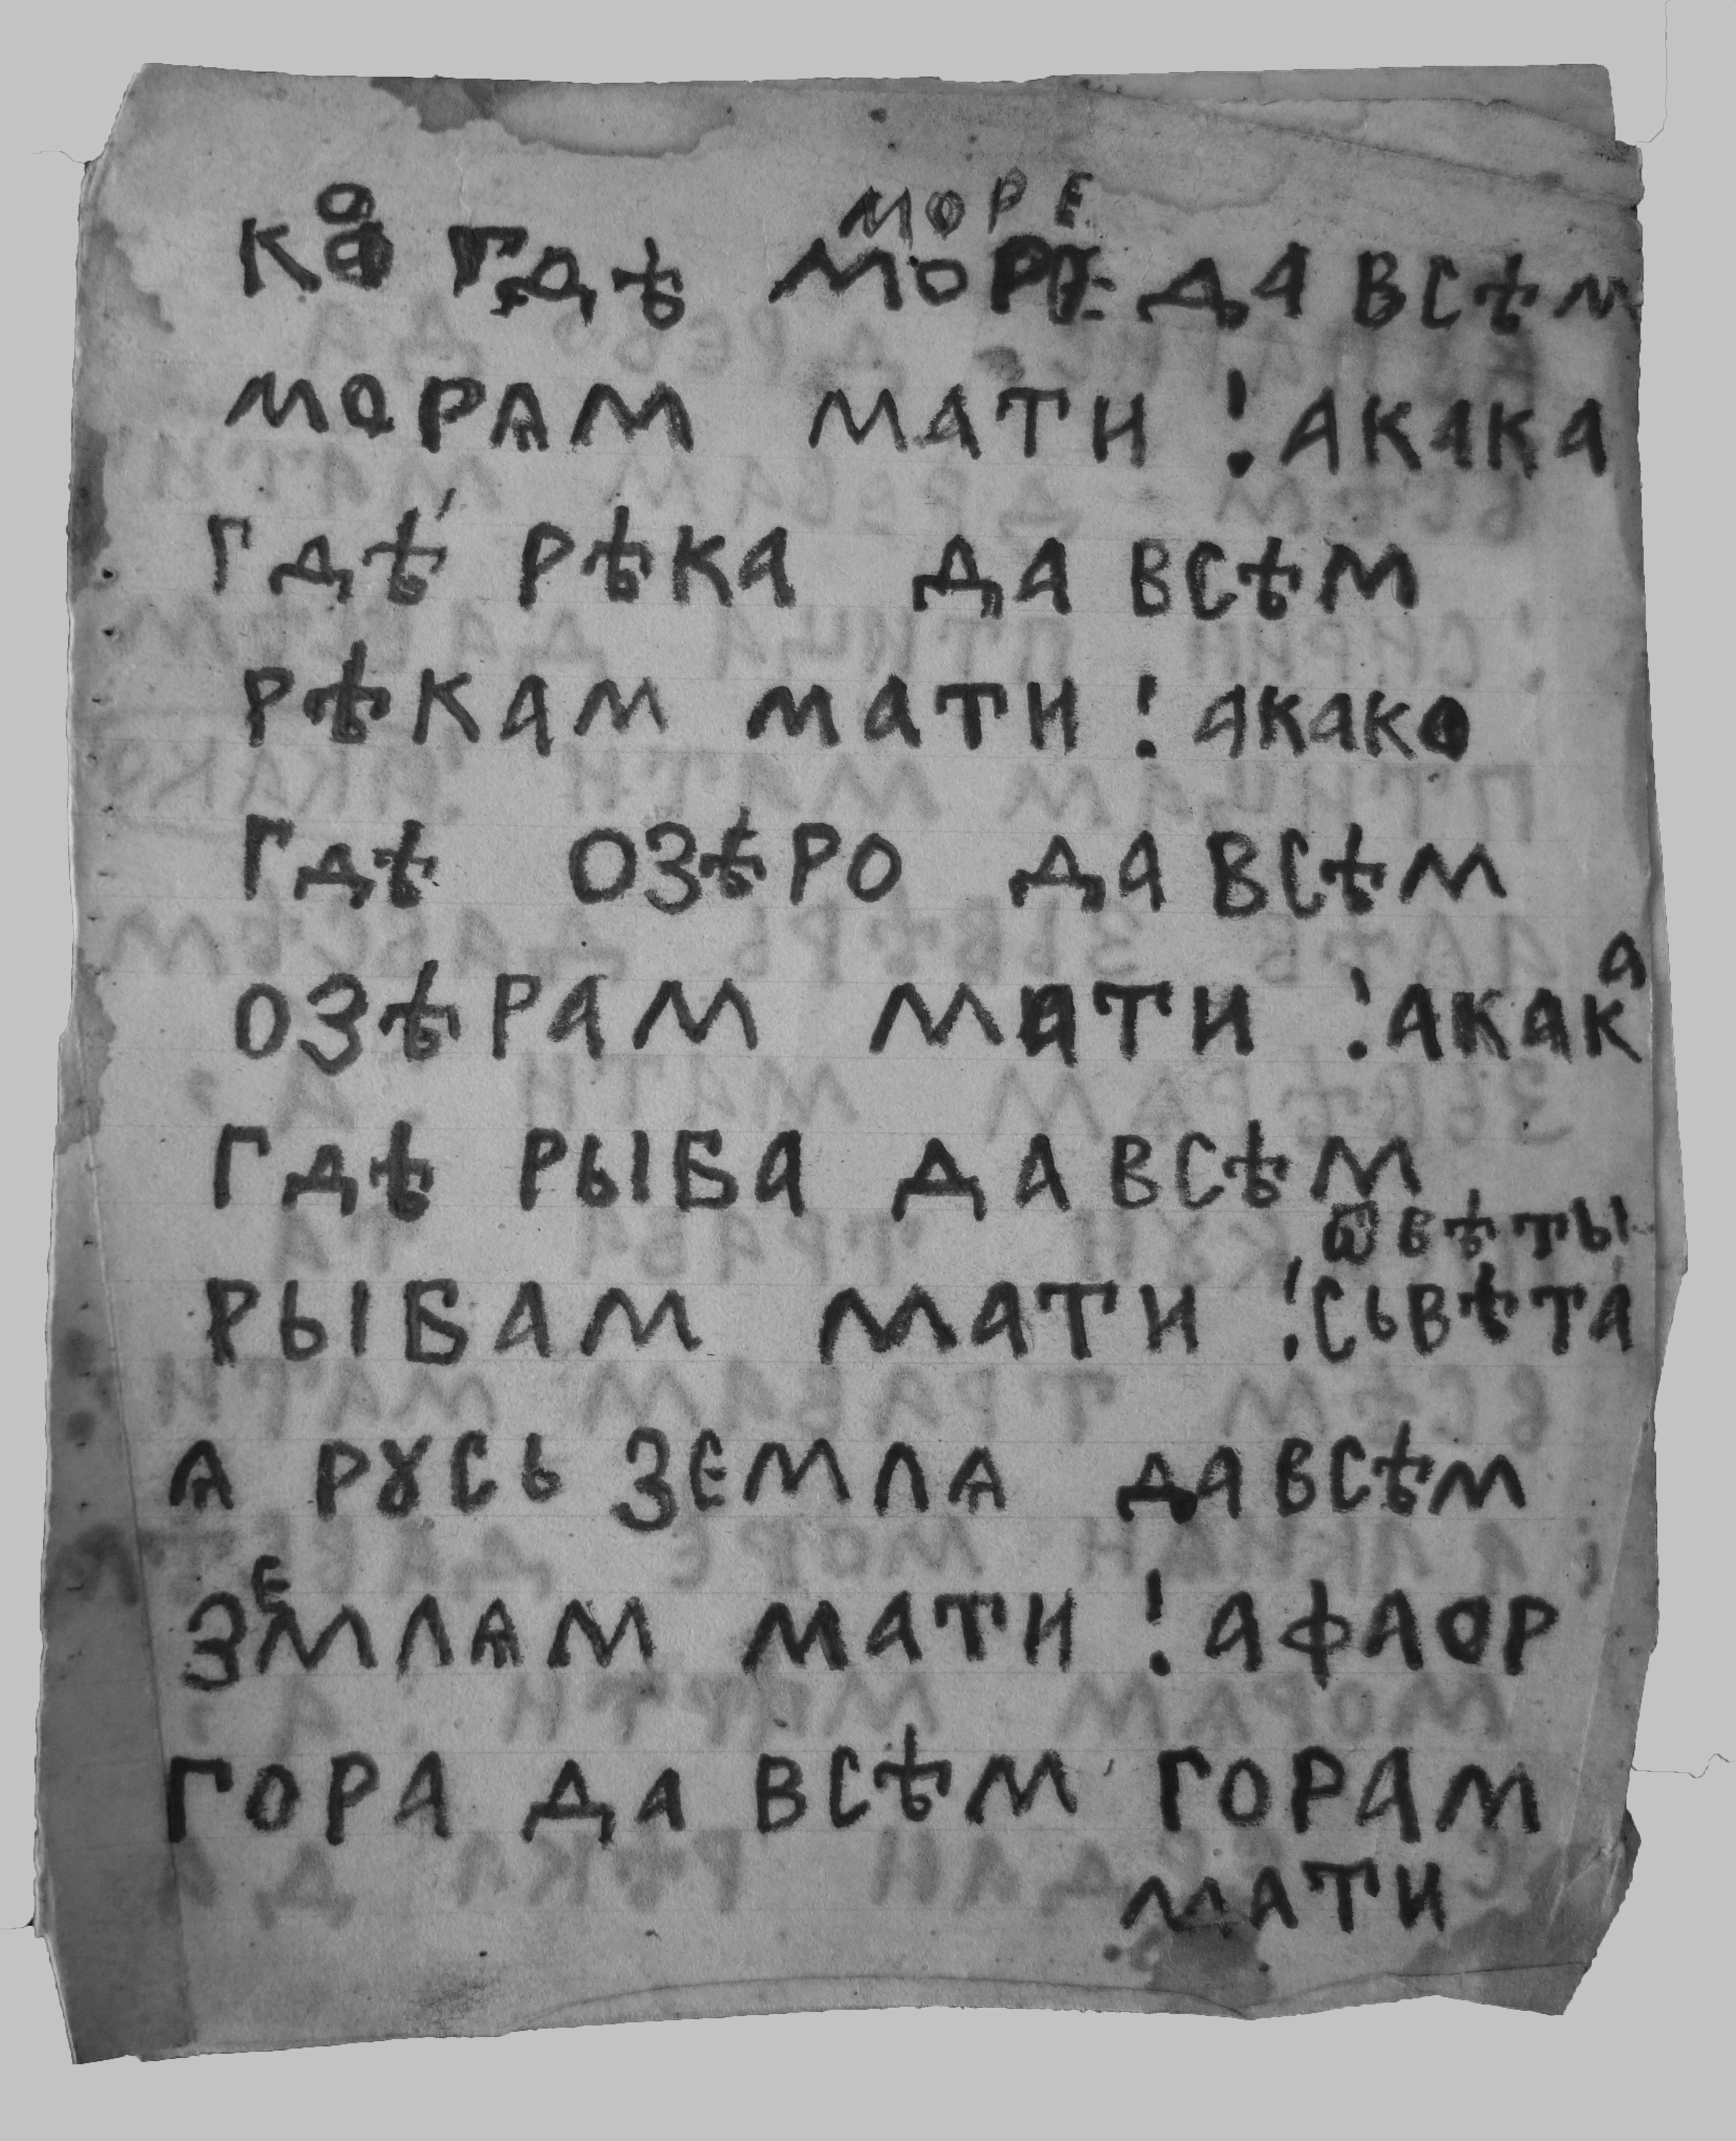 море
ко гдѣ море да всѣм
морѧм мати ! акака
гдѣ рѣка да всѣм
рѣкам мати ! акако
гдѣ озѣро да всѣм
озѣрам мати ! акака
гдѣ рыба да всѣм
рыбам мати ! сьвѣта
ѧ рꙋсь земла да всѣм
землѧм мати ! афаор
гора да всѣм горам
мати